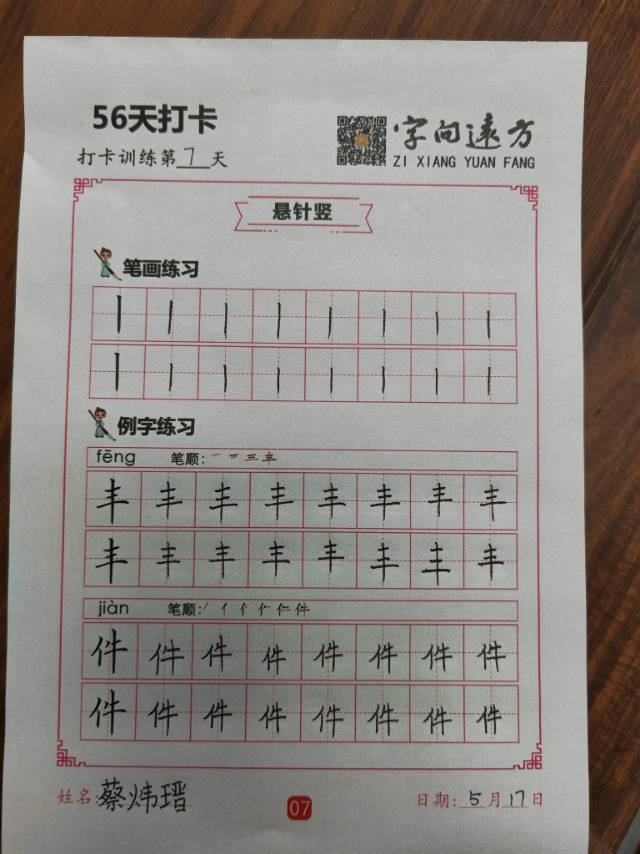 56天打卡
打卡训练第7天
字向远方
ZI XIANG YUAN FANG
悬针竖
笔画练习
丨 丨 丨 丨 丨 丨 丨 丨
丨 丨 丨 丨 丨 丨 丨 丨
例字练习
fēng 笔顺: 一 二 三 丰
丰 丰 丰 丰 丰 丰 丰 丰
丰 丰 丰 丰 丰 丰 丰 丰
jiàn 笔顺:
件 件 件 件 件 件 件 件
件 件 件 件 件 件 件 件
姓名:蔡炜瑨
07
日期: 5月17日